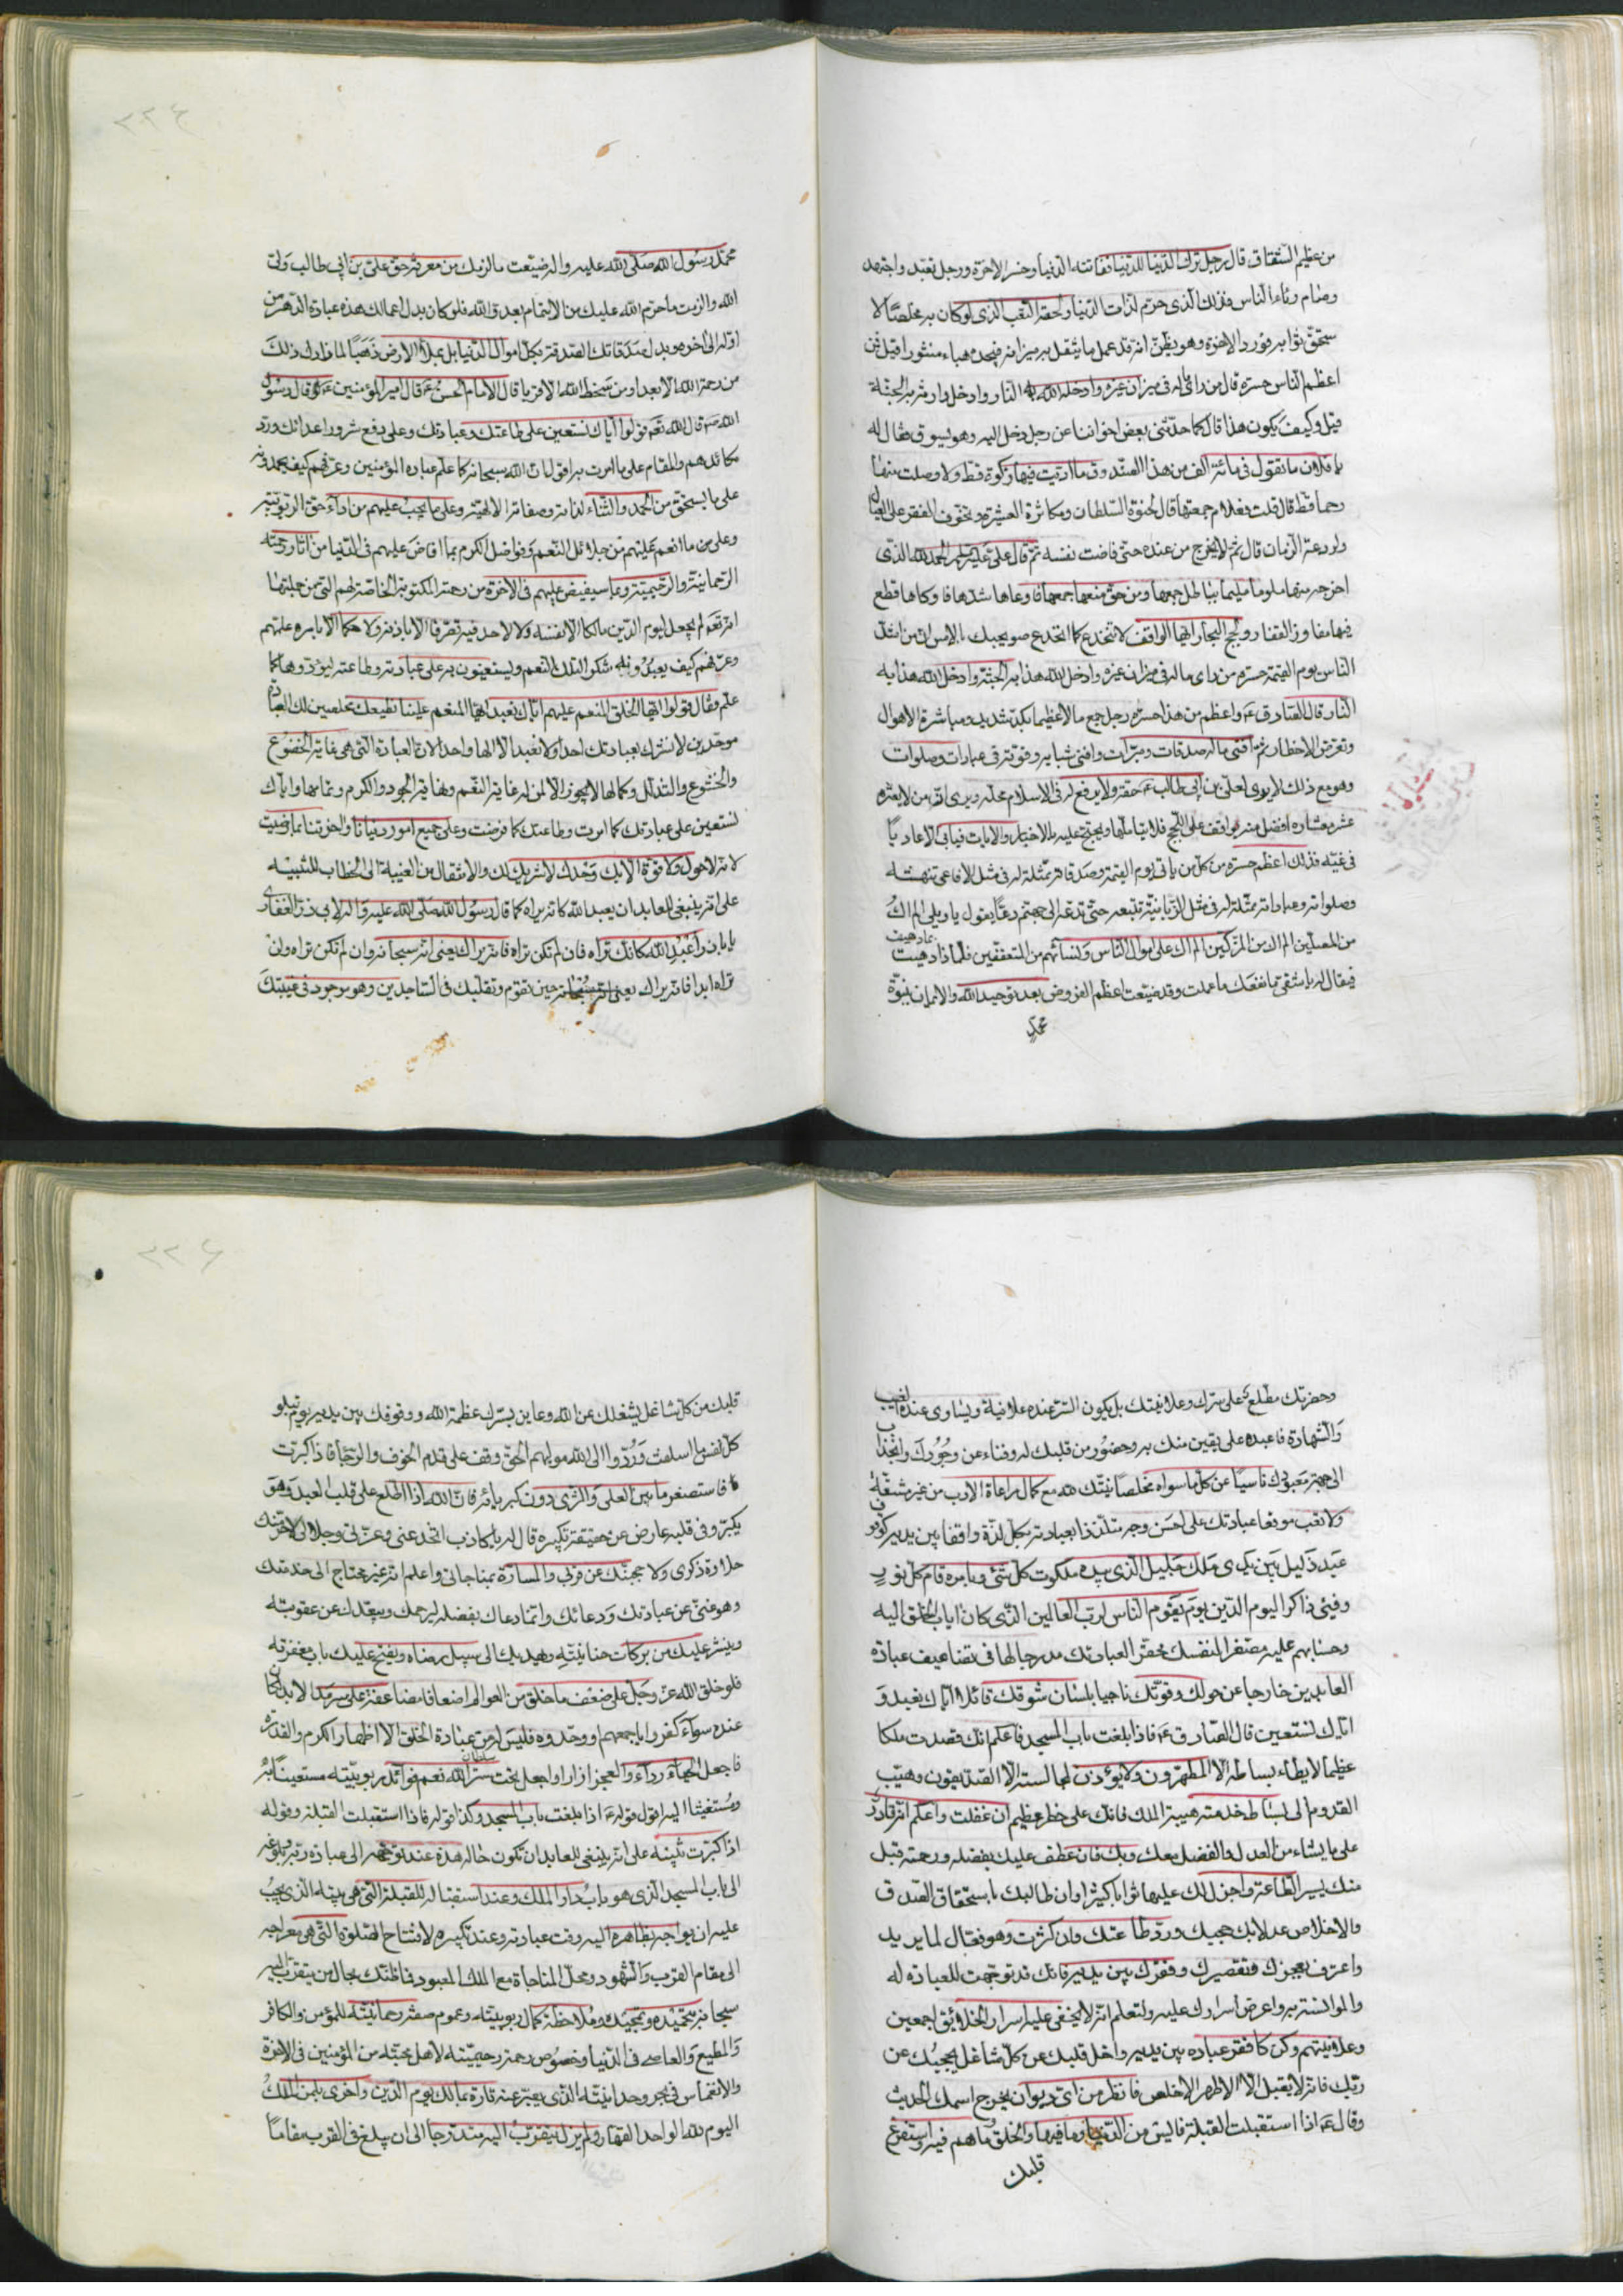 من عظيم الشقاق قال رجل ترك الدنيا للدنيا ففاتته الدنيا وخسر الاخرة ورجل تعبد واجتهد
وصام رئاء الناس فذلك الذى حرم لذات الدنيا ولحقه التعب الذى لو كان به مخلصا لا
ستحق ثوابه فورد الاخرة وهو يظن انه قد عمل ما يثقل به ميزانه فيجده هباء منثورا قيل فمن
اعظم الناس حسرة قال من راى ماله فى ميزان غيره وادخله الله به النار وادخل وارثه به الجنة
قيل وكيف يكون هذا قال كما حدثنى بعض اخواننا عن رجل دخل اليه وهو يسوق فقال له
يا فلان ما تقول فى مائة الف من هذا الصندوق ما اديت فيها زكوة قط ولا وصلت منها
رحما قط قال قلت فعلام جمعتها قال لجفوة السلطان ومكاثرة العشيرة وتخوف الفقر على العيال
ولروعة الزمان قال ثم لم يخرج من عنده حتى فاضت نفسه ثم قال على عليه السلام الحمد لله الذى
اخرجه منها ملوما مليما بباطل جمعها ومن حق منعها جمعها فاوعاها شدها فاوكاها قطع
فيها مفاوز القفار ولجج البحار ايها الواقف لا تخدع كما انخدع صويحبك بالامس ان من اشد
الناس يوم القيمة حسرة من راى ماله فى ميزان غيره وادخل الله هذا به الجنة وادخل الله هذا به
النار قال الصادق ع واعظم من هذا حسرة رجل جمع مالا عظيما بكد شديد ومباشرة الاهوال
وتعرض الاخطار ثم افنى ماله صدقات ومبرات وافنى شبابه وقوته فى عبادات وصلوات
وهو مع ذلك لا يرى لعلى بن ابى طالب ع حقه ولا يعرف له فى الاسلام محله ويرى ان من لا بعشره
عشر معشاره افضل منه يواقف على الحجج فلا يتاملها ويحتج عليه بالاخبار والايات فيابى الا تماديا
فى غيه فذلك اعظم حسرة من كل من ياتى يوم القيمة وصدقاته ممثلة له فى مثل الافاعى تنهشه
وصلواته وعباداته ممثلة له فى مثل الزبانية تتبعه حتى تدعه الى جهنم دعا يقول يا ويلى الم اك
من المصلين الم اك من المزكين الم اك على اموال الناس ونسائهم من المتعففين فلماذا دهيت
بما دهيت
فيقال له يا شقى ما نفعك ما عملت وقد ضيعت اعظم الفروض بعد توحيد الله والايمان بنبوة
محمد
محمد رسول الله صلى الله عليه واله ضيعت ما لزمك من معرفة حق على بن ابى طالب ولى
الله والزمت ما حرم الله عليك من الايتمام بعدو الله فلو كان بدل اعمالك هذه عبادة الدهر من
اوله الى اخره وبدل صدقاتك الصدقة بكل اموال الدنيا بل بملأ الارض ذهبا لما زادك ذلك
من رحمة الله الا بعدا ومن سخط الله الا قربا قال الامام الحسن ع قال امير المؤمنين ع قال رسول
الله ص قال الله تعم قولوا اياك نستعين على طاعتك وعبادتك وعلى دفع شرور اعدائك ورد
مكائدهم والمقام على ما امرت به اقول بان الله سبحانه كما علم عباده المؤمنين وعرفهم كيف يحمدونه
على ما يستحق من الحمد والثناء لذاته وصفاته الالهية وعلى ما يجب عليهم من اداء حق الربوبية
وعلى من ما انعم عليهم من جلائل النعم وفواضل الكرم بما افاض عليهم فى الدنيا من اثار رحمته
الرحمانية والرحيمية وبما سيفيض عليهم فى الاخرة من رحمته المكتوبة الخاصة لهم التى من جملتها
انه تعم لم يجعل ليوم الدين مالكا الا نفسه ولا لاحد فيه تصرفا الا باذنه ولا حكما الا بامره علمهم
وعرفهم كيف يعبدونه شكرا لتلك النعم ويستعينون به على عبادته وطاعته ليؤدوها كما
علم وقال قولوا ايها الخلق المنعم عليهم اياك نعبد ايها المنعم علينا نطيعك مخلصين لك العبادة
موحدين لا نشرك بعبادتك احدا ولا نعبد الا الها واحدا لان العبادة التى هى غاية الخضوع
والخشوع والتذلل وكمالها لا يجوز الا لمن له غاية النعم ونهاية الجود والكرم وتمامها واياك
نستعين على عبادتك كما امرت وطاعتك كما فرضت وعلى جميع امور دنيانا واخرتنا بما رضيت
لانه لا حول ولا قوة الا بك وحدك لا شريك لك والانتقال من الغيبة الى الخطاب للتنبيه
على انه ينبغى للعابد ان يعبد الله كانه يراه كما قال رسول الله صلى الله عليه واله لابى ذر الغفارى
يا باذر اعبد الله كانك تراه فان لم تكن تراه فانه يراك يعنى انه سبحانه وان لم تكن تراه ولن
تراه ابدا فانه يراك يعنى انه سبحانه حين تقوم وتقلبك فى الساجدين وهو موجود فى غيبتك
وحضرتك مطلع على سرك وعلانيتك بل يكون السر عنده علانية ويساوى عنده الغيب
والشهادة فاعبده على يقين منك به وحضور من قلبك له وفناء عن وجودك وانجذاب
الى جهة معبودك ناسيا عن كل ما سواه مخلصا نيتك له مع كمال مراعاة الادب من غير مشقة
ولا تعب موقعا عبادتك على احسن وجه متلذذا بعبادته بكل لذة واقفا بين يديه كوقوف
عبد ذليل بين يدى ملك جليل الذى بيده ملكوت كل شئ وبامره قام كل نور
وفيئ ذاكرا ليوم الدين يوم يقوم الناس لرب العالمين الذى كان اياب الخلق اليه
وحسابهم عليه مصغرا لنفسك محقرا لعبادتك مدرجا لها فى تضاعيف عبادة
العابدين خارجا عن حولك وقوتك ناجيا بلسان شوقك قائلا اياك نعبد و
اياك نستعين قال الصادق ع فاذا بلغت باب المسجد فاعلم انك قصدت ملكا
عظيما لا يطاء بساطه الا المطهرون ولا يؤذن لمجالسته الا الصديقون وهب
القدوم الى بساط خدمته هيبة الملك فانك على خطر عظيم ان غفلت واعلم انه قادر
على ما يشاء من العدل والفضل معك وبك فان عطف عليك بفضله ورحمته قبل
منك يسير الطاعة واجزل لك عليها ثوابا كثيرا وان طالبك باستحقاق الصدق
والاخلاص عدلا بك حجبك ورد طاعتك وان كثرت وهو فعال لما يريد
واعترف بعجزك وتقصيرك وفقرك بين يديه فانك قد توجهت للعبادة له
والموانسة به واعرض اسرارك عليه ولتعلم انه لا يخفى عليه اسرار الخلائق اجمعين
وعلانيتهم وكن كافقر عباده بين يديه واخل قلبك عن كل شاغل يحجبك عن
ربك فانه لا يقبل الا الاطهر الاخلص فانظر من اى ديوان يخرج اسمك الحديث
وقال ع اذا استقبلت القبلة فايس من الدنيا وما فيها والخلق وما هم فيه واستفرغ
قلبك
قلبك من كل شاغل يشغلك عن الله وعاين بسرك عظمة الله ووقوفك بين يديه يوم تبلو
كل نفس ما اسلفت وردوا الى الله موليهم الحق وقف على قدم الخوف والرجاء فاذا كبرت
فاستصغر ما بين العلى والثرى دون كبريائه فان الله اذا اطلع على قلب العبد وهو
يكبر وفى قلبه عارض عن حقيقة تكبيره قال له يا كاذب اتخدعنى وعزتى وجلالى لاحرمنك
حلاوة ذكرى ولاحجبنك عن قربى والمسارة بمناجاتى واعلم انه غير محتاج الى خدمتك
وهو غنى عن عبادتك ودعائك وانما دعاك بفضله ليرحمك ويبعدك عن عقوبته
وينشر عليك من بركات حنانيته ويهديك الى سبيل رضاه ويفتح عليك باب مغفرته
فلو خلق الله عز وجل على ضعف ما خلق من العوالم اضعافا مضاعفة على سرمد الابد لكان
عنده سواء كفروا باجمعهم او وحدوه فليس له من عبادة الخلق الا اظهار الكرم والقدرة
فاجعل الحياء رداء والعجز ازارا وادخل تحت سر سلطان الله تغنم فوائد ربوبيته مستعينا به
ومستغيثا اليه اقول قوله ع اذا بلغت باب المسجد وكذا قوله فاذا استقبلت القبلة وقوله
اذا كبرت تنبيه على انه ينبغى للعابد ان تكون حاله هذه عند توجهه الى عبادة ربه وبلوغه
الى باب المسجد الذى هو باب دار الملك وعند استقباله للقبلة التى هى بيته الذى يجب
عليه ان يواجه بظاهره اليه وقت عبادته وعند تكبيره لافتتاح الصلوة التى هى معراجه
الى مقام القرب والشهود ومحل المناجاة مع الملك المعبود فما ظنك بحال من يتقرب اليه
سبحانه بتحميده وتمجيده وملاحظة كمال ربوبيته وعموم صفة رحمانيته للمؤمن والكافر
والمطيع والعاصى فى الدنيا وخصوص رحمة رحيميته لاهل محبته من المؤمنين فى الاخرة
والانغماس فى بحر وحدانيته الذى يعبر عنه تارة بمالك يوم الدين واخرى بلمن الملك
اليوم لله الواحد القهار ولم يزل يتقرب اليه متدرجا الى ان يبلغ فى القرب مقاما